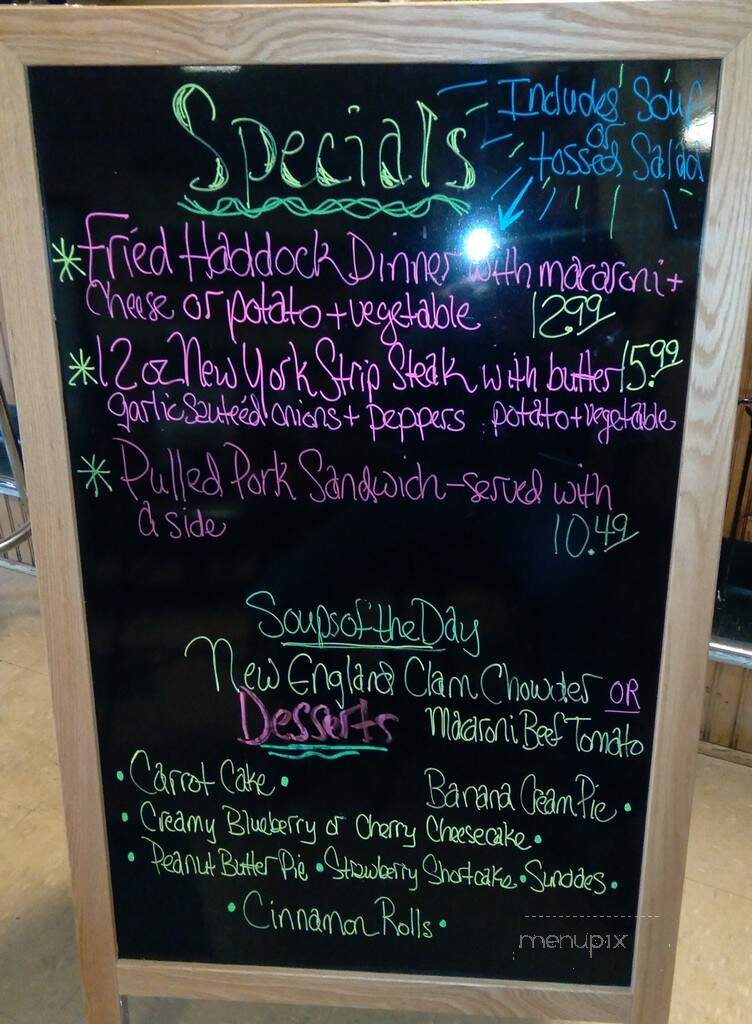 Specials
Includes Soup
or
tossed Salad
* Fried Haddock Dinner with macaroni +
cheese or potato + vegetable 12.99
* 12 oz New York Strip Steak with butter 15.99
garlic sauteéd onions + peppers potato + vegetable
* Pulled Pork Sandwich - served with
a side 10.49
Soups of the Day
New England Clam Chowder OR
Macaroni Beef Tomato
Desserts
• Carrot Cake •
Banana Cream Pie •
• Creamy Blueberry or Cherry Cheesecake •
• Peanut Butter Pie • Strawberry Shortcake • Sundaes •
• Cinnamon Rolls •
menupix